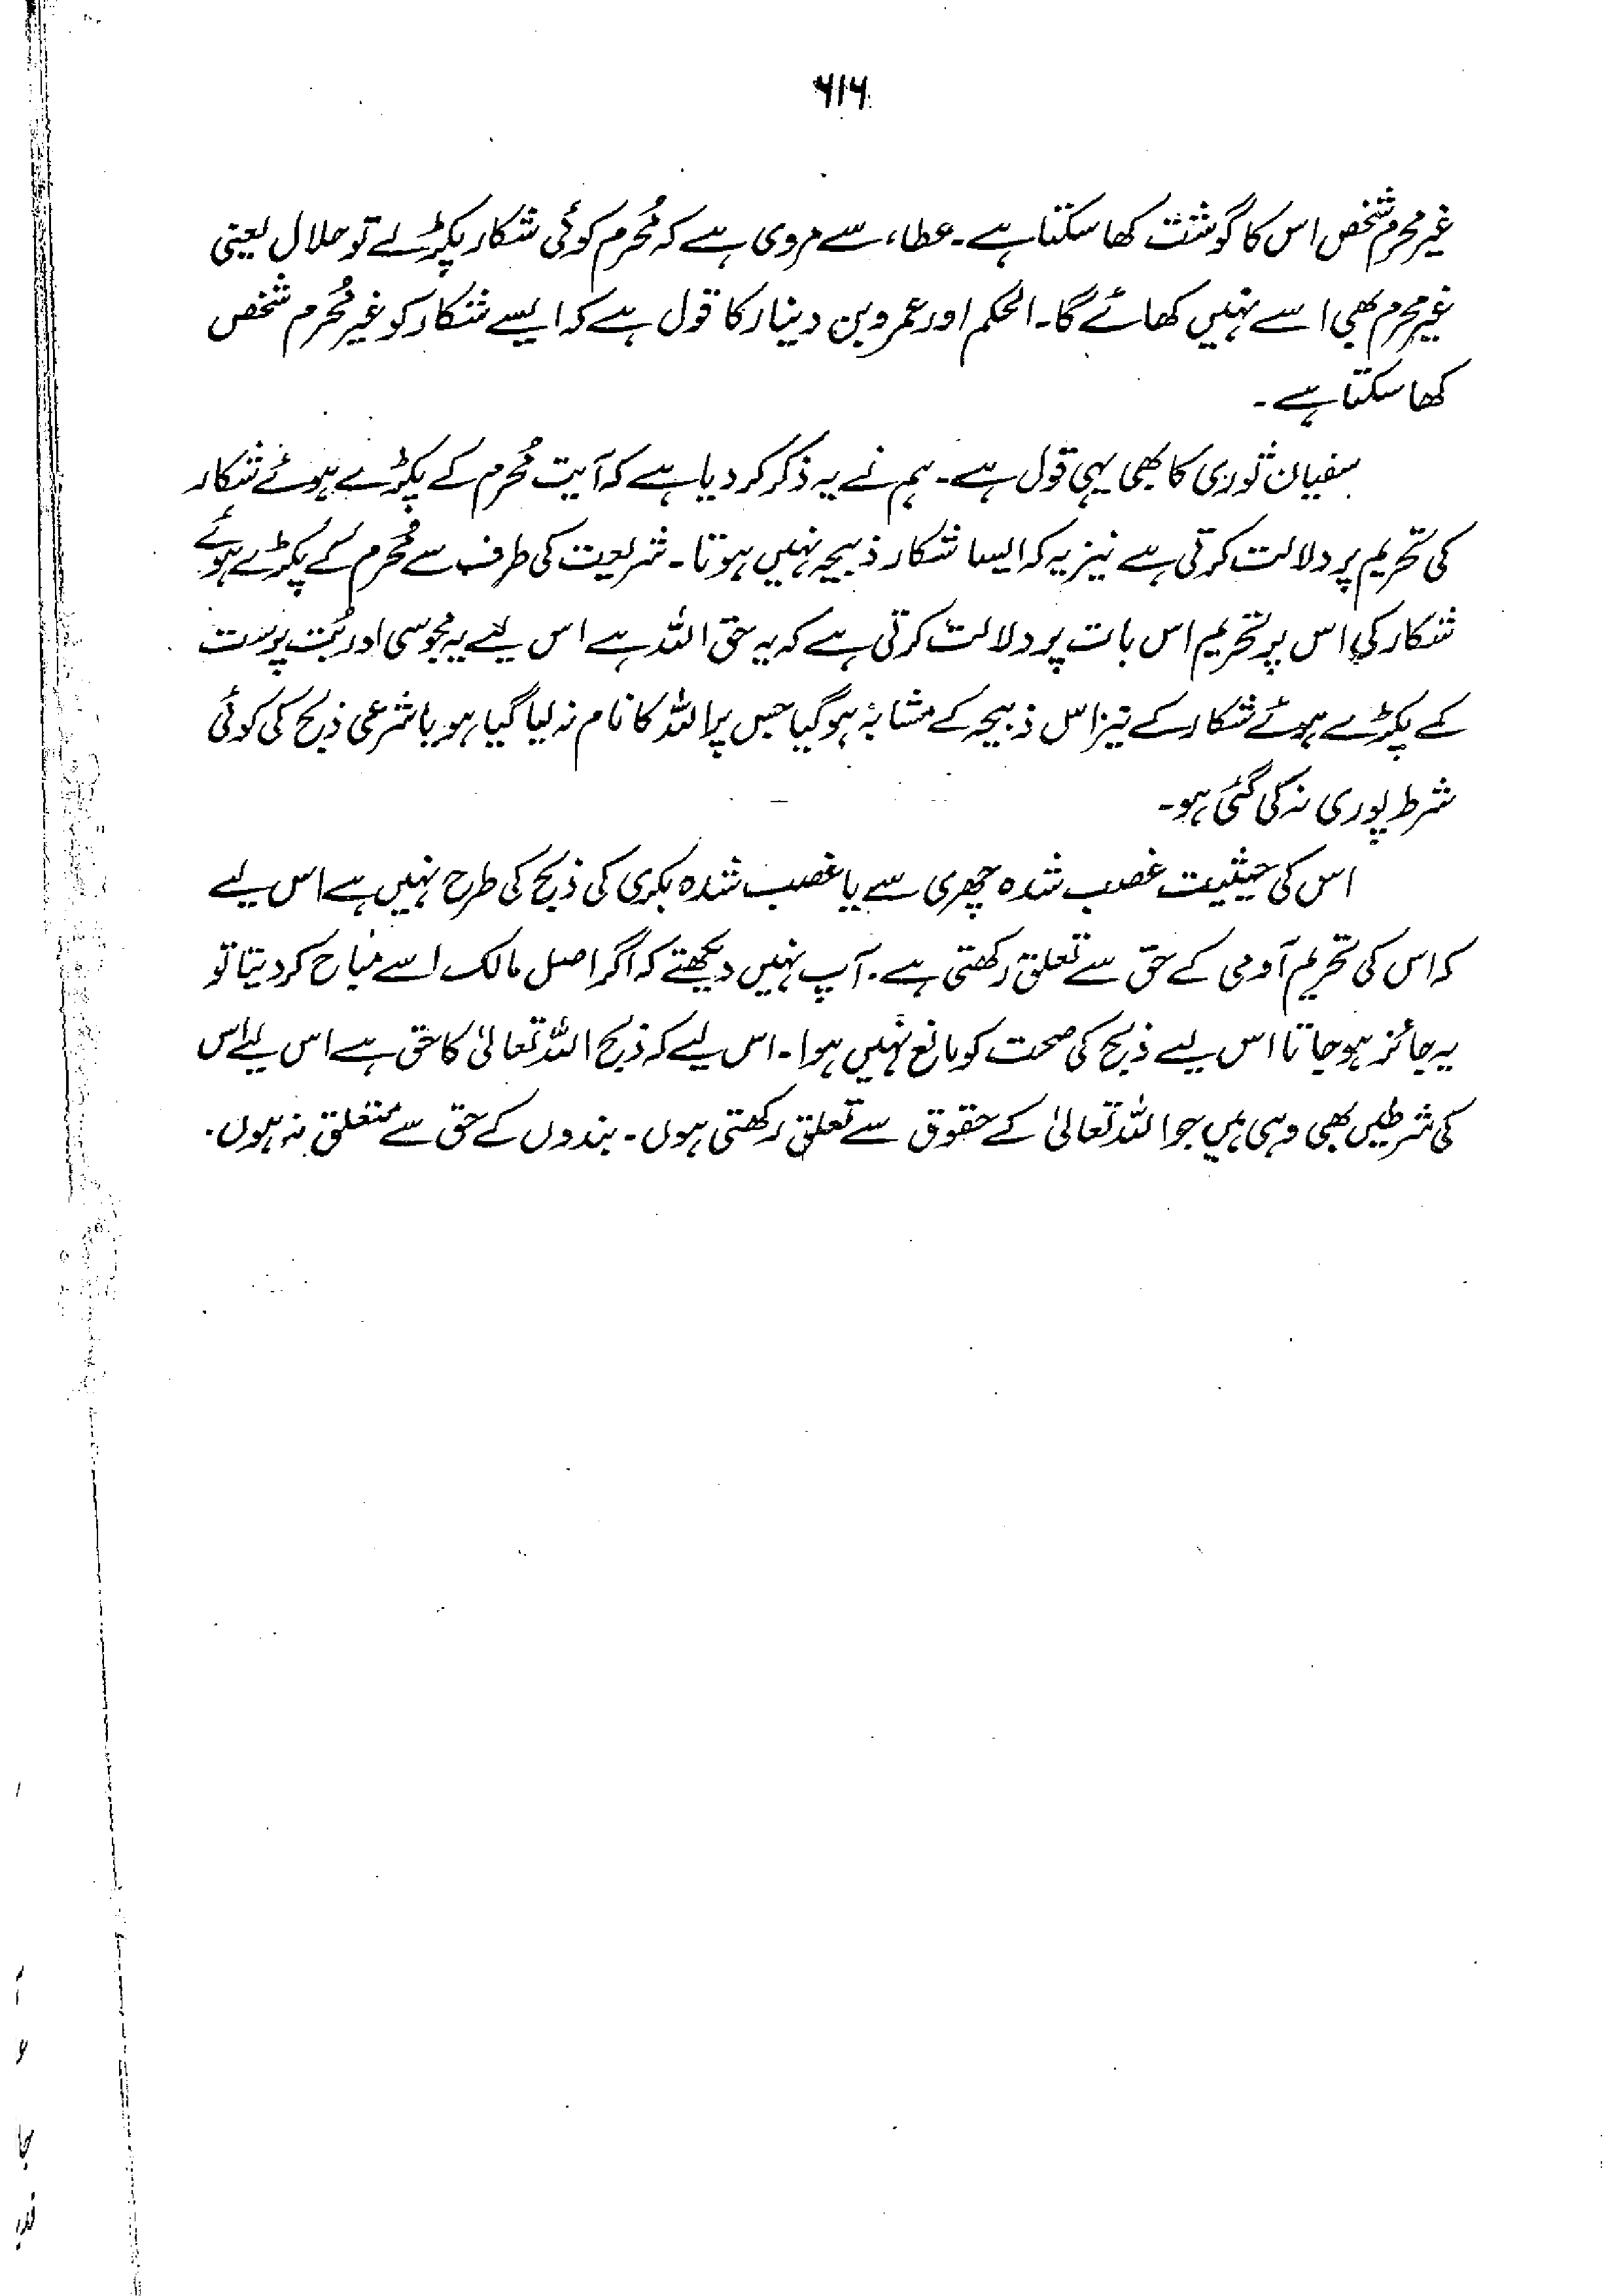 ۶۱۶
غیر محرم شخص اس کا گوشت کھا سکتا ہے۔ عطاء سے مروی ہے کہ مُحرم کوئی شکار پکڑے تو حلال یعنی
غیر محرم بھی اسے نہیں کھائے گا۔ الحکم اور عمرو بن دینار کا قول ہے کہ ایسے شکار کو غیر مُحرم شخص
کھا سکتا ہے۔
سفیان ثوری کا بھی یہی قول ہے۔ ہم نے یہ ذکر کر دیا ہے کہ آیت مُحرم کے پکڑے ہوئے شکار
کی تحریم پر دلالت کرتی ہے نیز یہ کہ ایسا شکار ذبیحہ نہیں ہوتا۔ شریعت کی طرف سے مُحرم کے پکڑے ہوئے
شکار کی اس پر تحریم اس بات پر دلالت کرتی ہے کہ یہ حق اللہ ہے اس لیے یہ مجوسی اور بُت پرست
کے پکڑے ہوئے شکار کے نیز اس ذبیحہ کے مشابہ ہو گیا جس پر اللہ کا نام نہ لیا گیا ہو یا شرعی ذبح کی کوئی
شرط پوری نہ کی گئی ہو۔
اس کی حیثیت غصب شدہ چھری سے یا غصب شدہ بکری کی ذبح کی طرح نہیں ہے اس لیے
کہ اس کی تحریم آدمی کے حق سے تعلق رکھتی ہے۔ آپ نہیں دیکھتے کہ اگر اصل مالک اسے مباح کر دیتا تو
یہ جائز ہو جاتا اس لیے ذبح کی صحت کو مانع نہیں ہوا۔ اس لیے کہ ذبح اللہ تعالیٰ کا حق ہے اس لیے اس
کی شرطیں بھی وہی ہیں جو اللہ تعالیٰ کے حقوق سے تعلق رکھتی ہوں۔ بندوں کے حق سے متعلق نہ ہوں۔